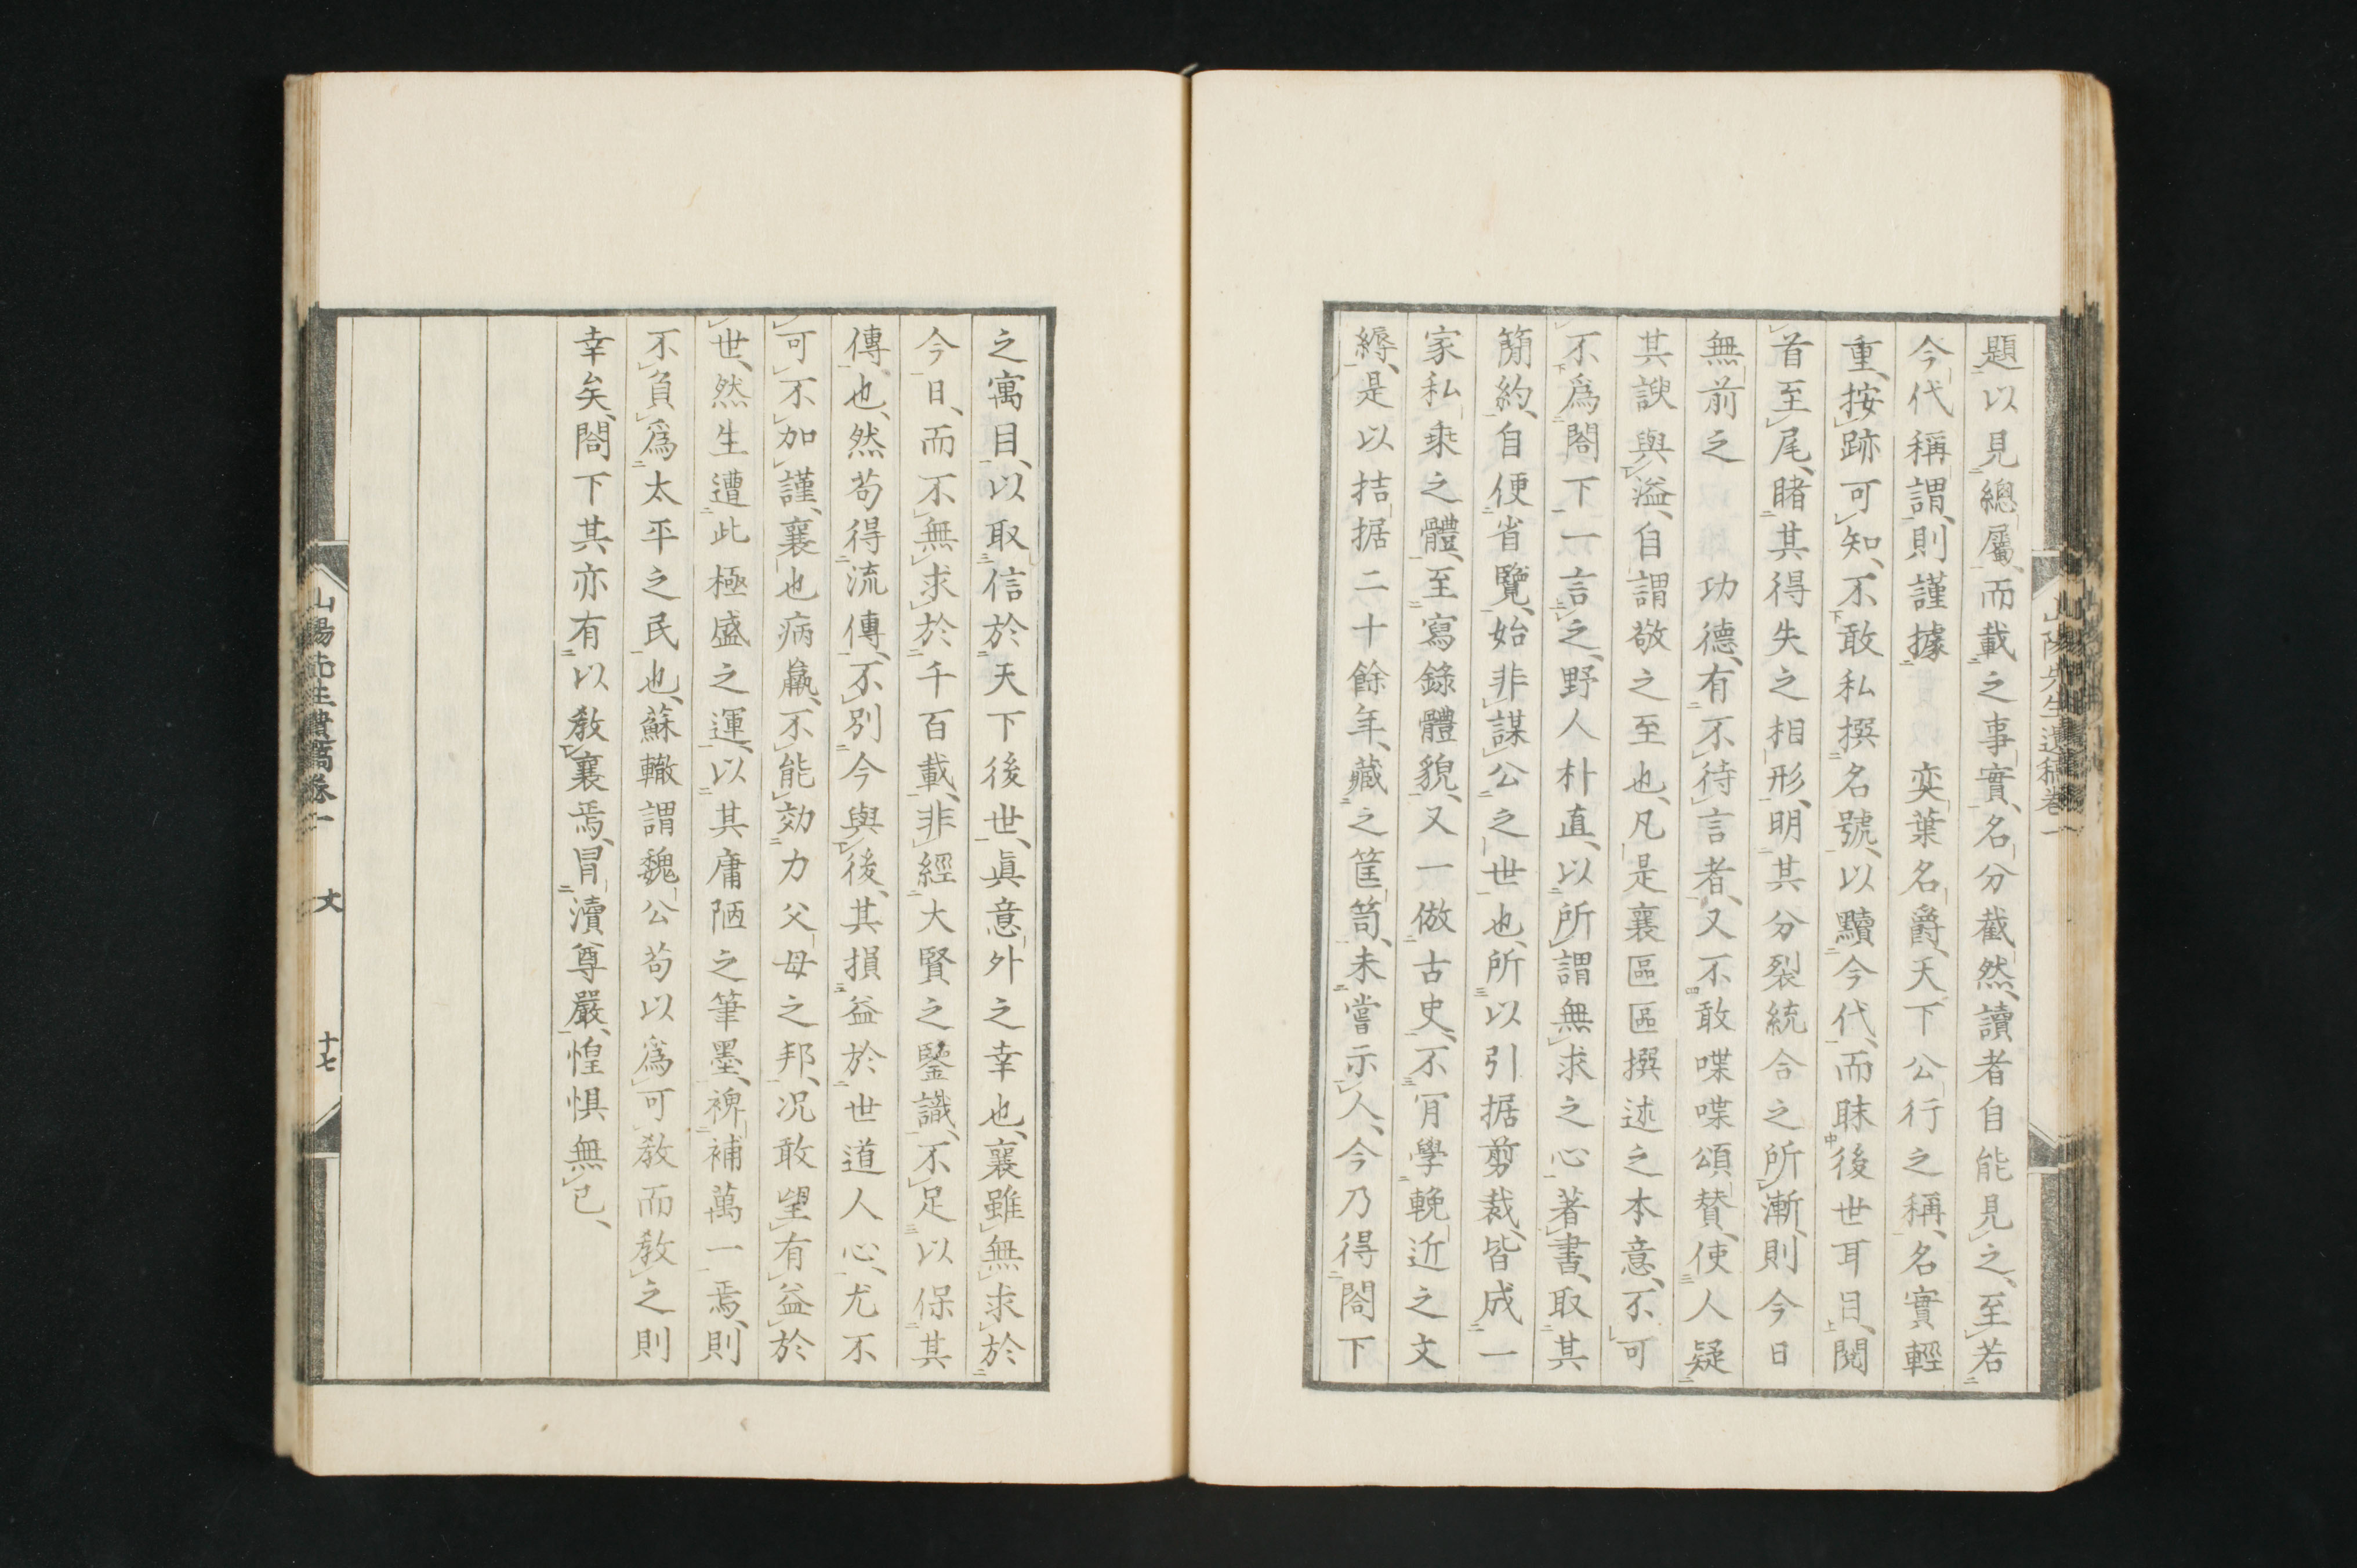 題以見總屬、而載之事實、名分截然、讀者自能見之、至若
今代稱謂、則謹據　奕葉名爵、天下公行之稱、名實輕
重、按跡可知、不敢私撰名號、以黷今代、而眜後世耳目、閱
首至尾、睹其得失之相形、明其分裂統合之所漸、則今日
無前之　功德、有不待言者、又不敢喋喋頌賛、使人疑
其諛與溢、自謂敬之至也、凡是襄區區撰述之本意、不可
不爲閤下一言之、野人朴直、以所謂無求之心著書、取其
簡約、自便省覽、始非謀公之世也、所以引据剪裁、皆成一
家私乘之體、至寫錄體貌、又一倣古史、不肎學輓近之文
縟、是以拮据二十餘年、藏之筐笥、未嘗示人、今乃得閤下
之寓目、以取信於天下後世、眞意外之幸也、襄雖無求於
今日、而不無求於千百載、非經大賢之鑒識、不足以保其
傳也、然苟得流傳、不別今與後、其損益於世道人心、尤不
可不加謹、襄也病羸、不能効力父母之邦、况敢望有益於
世、然生遭此極盛之運、以其庸陋之筆墨、裨補萬一焉、則
不負爲太平之民也、蘇轍謂魏公苟以爲可教而教之則
幸矣、閤下其亦有以教襄焉、冒瀆尊嚴、惶惧無已、
山陽先生遺稿卷一　文　十七